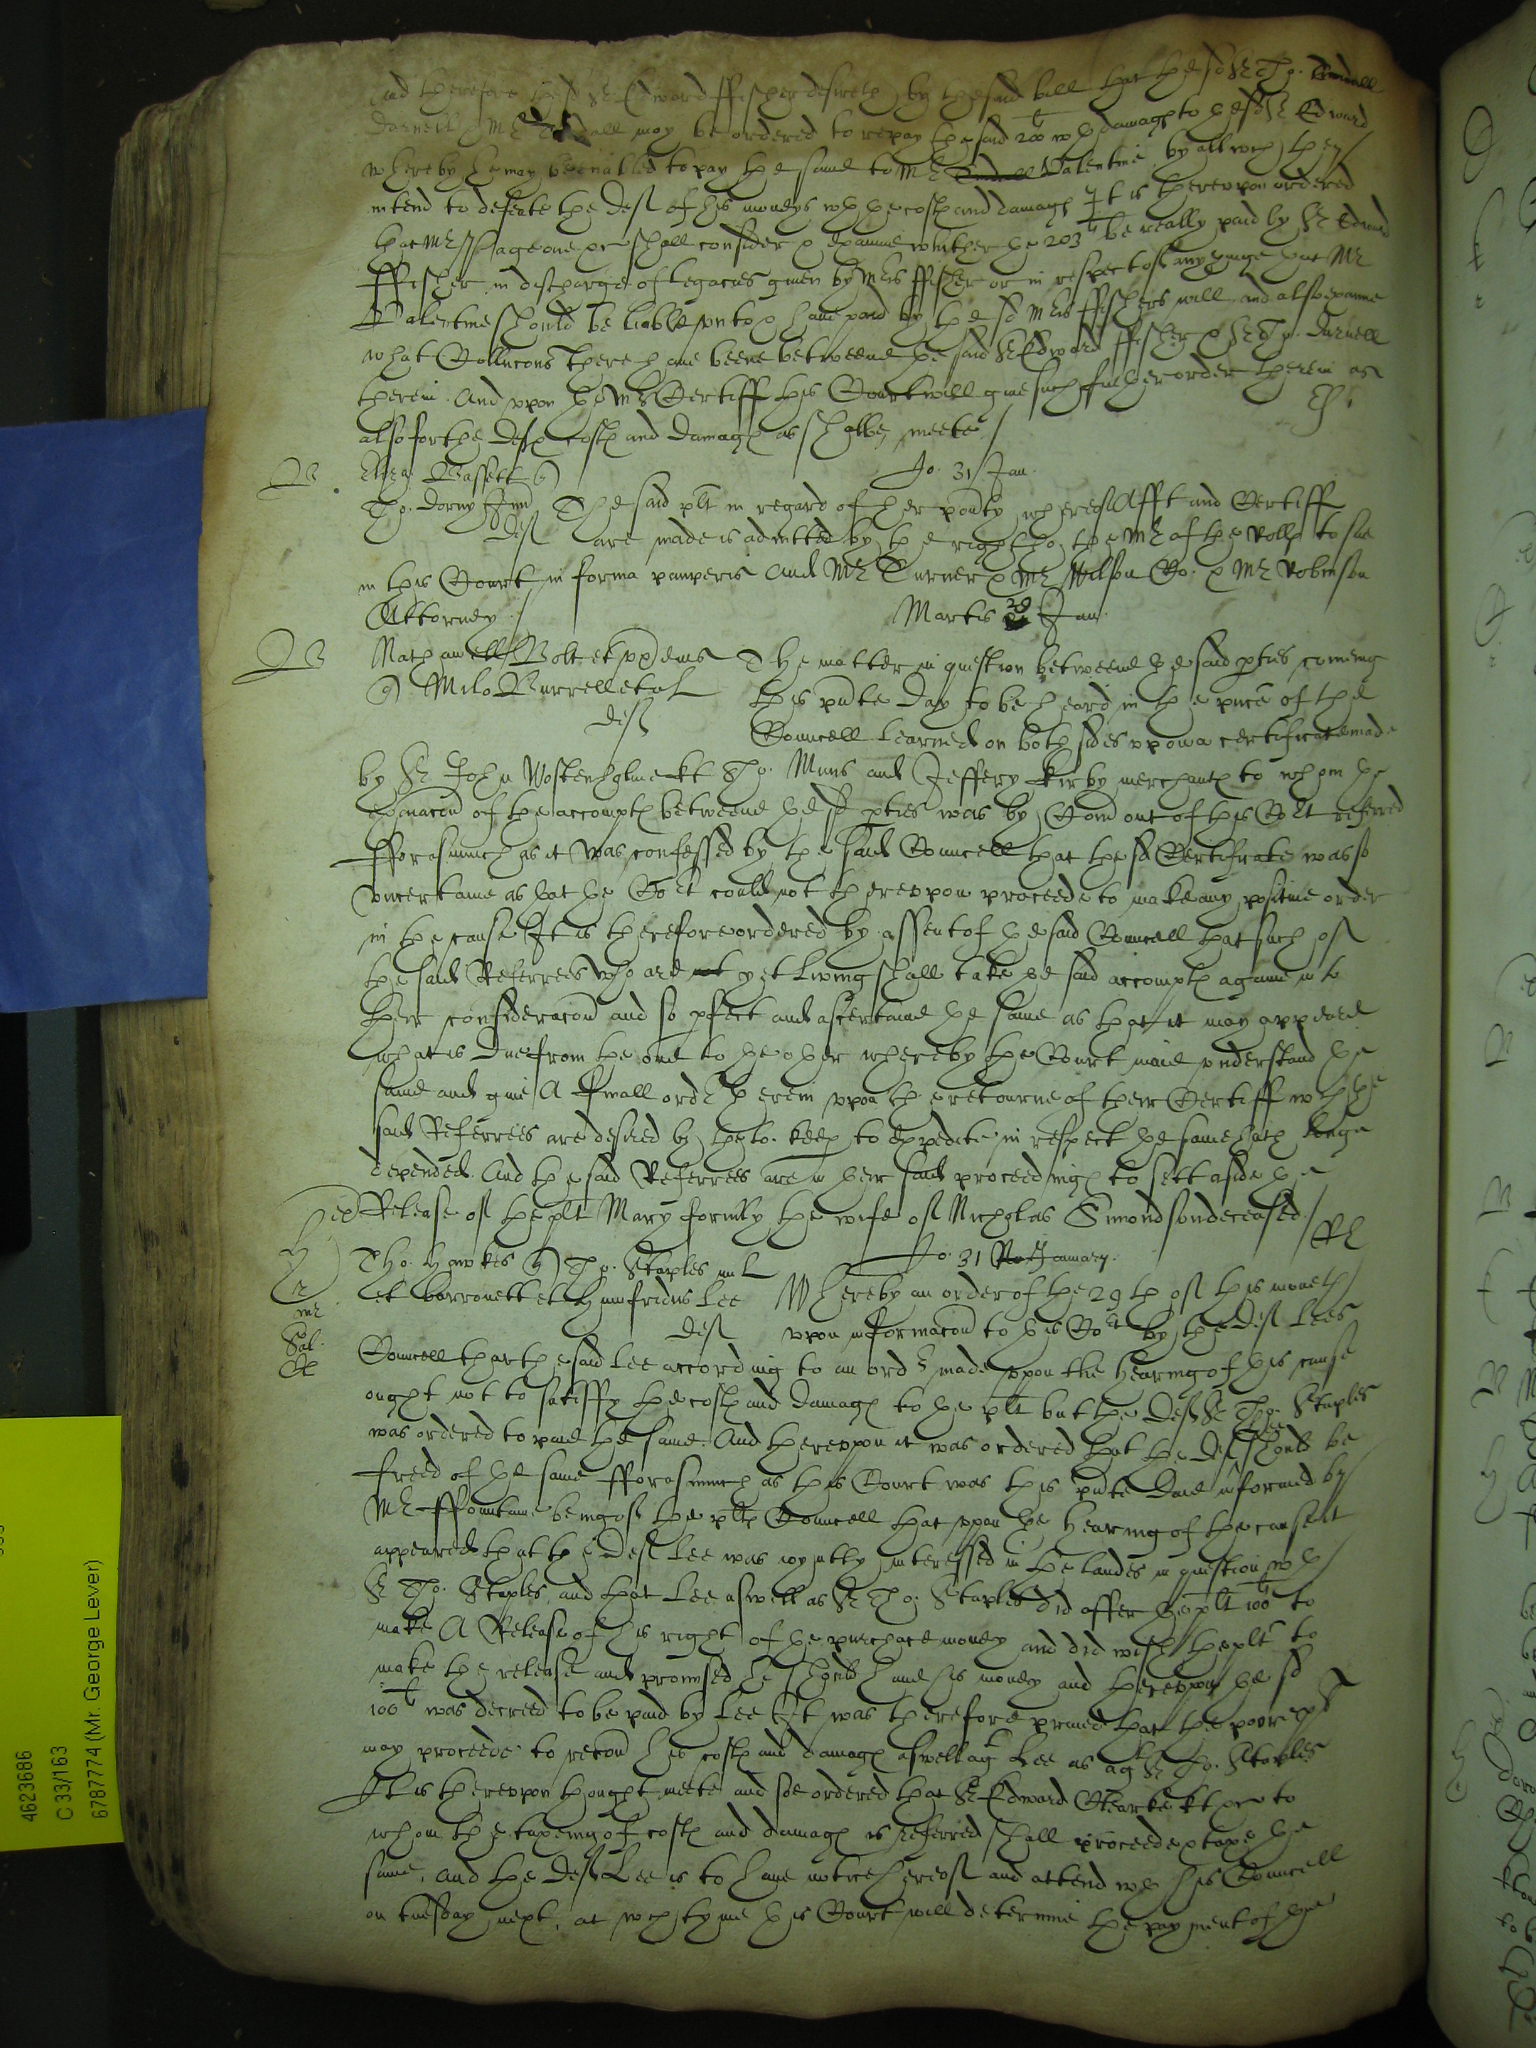 And therefore the sd Sr Edward ffisher desireth by the said bill that the sd Sr Tho.
Darnell & Mr may be ordered to repay the said 200l wth damages to the sd Sr Edward
whereby he may be enabled to pay the same to Mr Valentine by all wch they
intend to defeate the deft of his moneys wth the costs and damages It is therevpon ordered
that Mr Page one &c shall consider & examine whither the 203l be really paid by Sr Edward
ffisher in discharge of legacies given by Mris ffisher or in respect of any thinge that Mr
Valentine should be liable vnto & have paid by the sd Mris ffishers will and also examine
what Collucons there have beene betweene the said Sr Edward ffisher & Sr Tho. Darnell
therein And vpon the Mr Certiff this Court will give such further order therein as
also for the defts costs and damages as shalbe meete /
Bassett
Jo. 31 Jan.
Tho. Dorny Jun
deft
The said plt in regard of her pouty whereof Afft and Certiff
are made is admitted by the right ho. the Mr of the Rolls to sue
in this Court in forma pauperis And Mr Turner & Mr Wilson Co. & Mr Robinson
Attorney /
Martis 29 Jan.
Mathanell Bolt et vx
Milo Burrell et al
deft
The matter in question betweene the said pties coming
this pnte day to be heard in the pnce of the
Councell learned on both sides vpon a certificate made
by Sr John Wostenholme kt Tho. Muns and Jeffery kirby merchants to whom the
exaiacon of the accompts betweene the sd pties was by Com out of this Cort referred
fforasmuch as it was confessed by the said Councell that the sd Certificate was so
vncertaine as that the Cort could not therevpon proceede to make any positive order
in the cause It is therefore ordered by assent of the said Councell that such of
the said Referrees who are yet living shall take the said accompts againe into
their consideracon and so pfect and ascertaine the same as that it may appeare
what is due from the one to the other whereby the Court maie vnderstand the
same and give A finall ordr therein vpon the retourne of their Certiff wch the
said Referrees are desired by the lo. keep to expedite in respect the same hath longe
depended And the said Referrees are in their said proceedings to sett aside the
Release of the plt Mary formly the wife of Nicholas Simondson deceased /
Jo. 31 January.
Tho. Hawkes Tho. Staples mil
et barronett et Humfridus Lee
deft
Whereby an order of the 29th of this moneth
vpon informacon to this Cort by the deft Lees
Councell that the said Lee according to an ordr made vpon the hearing of this cause
ought not to satisffy the costs and damages to the plt but the deft Sr Tho. Staples
was ordered to paie the same. And therevpon it was ordered that the deft Lee should be
freed of the same fforasmuch as this Court was this pnte daie informed by
Mr ffountaine being of the plts Councell that vpon the hearing of the cause it
appeared that the deft Lee was ioyntly interessed in the landes in question wth
Sr Tho. Staples and that Lee aswell as Sr Tho. Staples did offer the plt 100l to
make A Release of his right of the purchace money and did wish the plt to
make the release and promised he should have his money and therevpon the sd
100l was decreed to be paid by Lee It was therefore praied that the poore plt
may proceede to recou his costs and damages aswell agt Lee as agt Sr Tho. Staples
It is therevpon thought meete and soe ordered that Sr Edward Clearke kt &c to
whom the taxeing of costs and damages is referred shall proceede & taxe the
same, And the deft Lee is to have notice thereof and attend wth his Councell
on tuesday next, at wch tyme this Court will determine the payment of the
4623686
C 33/163
6787774 (Mr. George Lever)